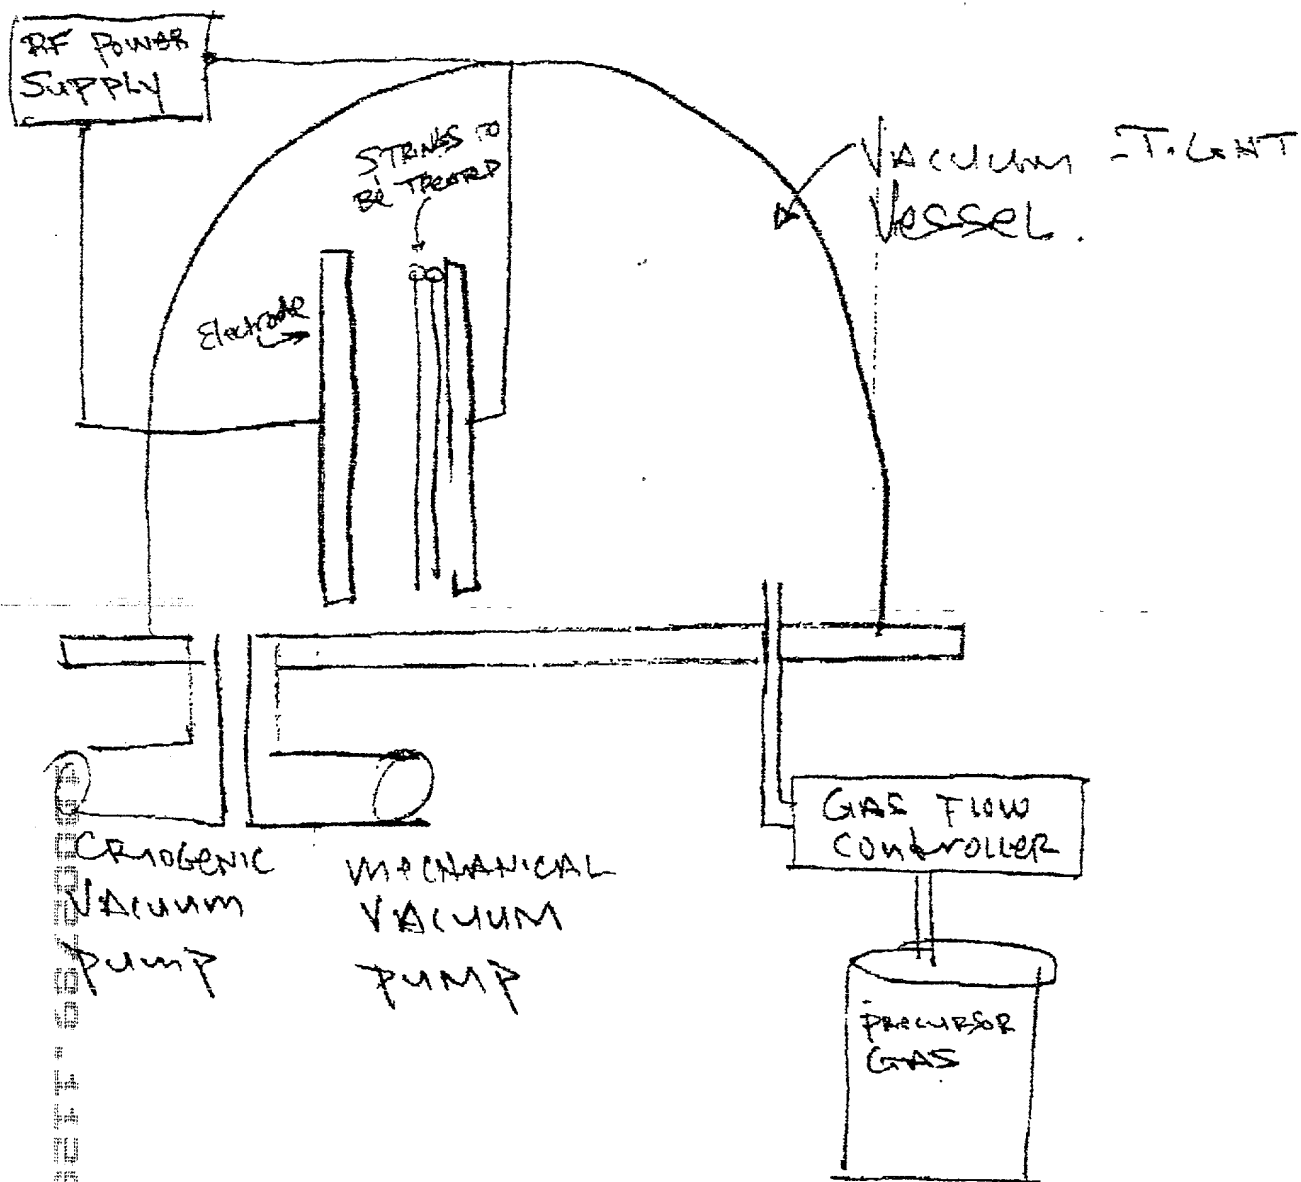 RF POWER
SUPPLY
STRINGS TO
BE TREATED
VACUUM-TIGHT
VESSEL.
Electrode
CRYOGENIC
VACUUM
PUMP
MECHANICAL
VACUUM
PUMP
GAS FLOW
CONTROLLER
PRECURSOR
GAS